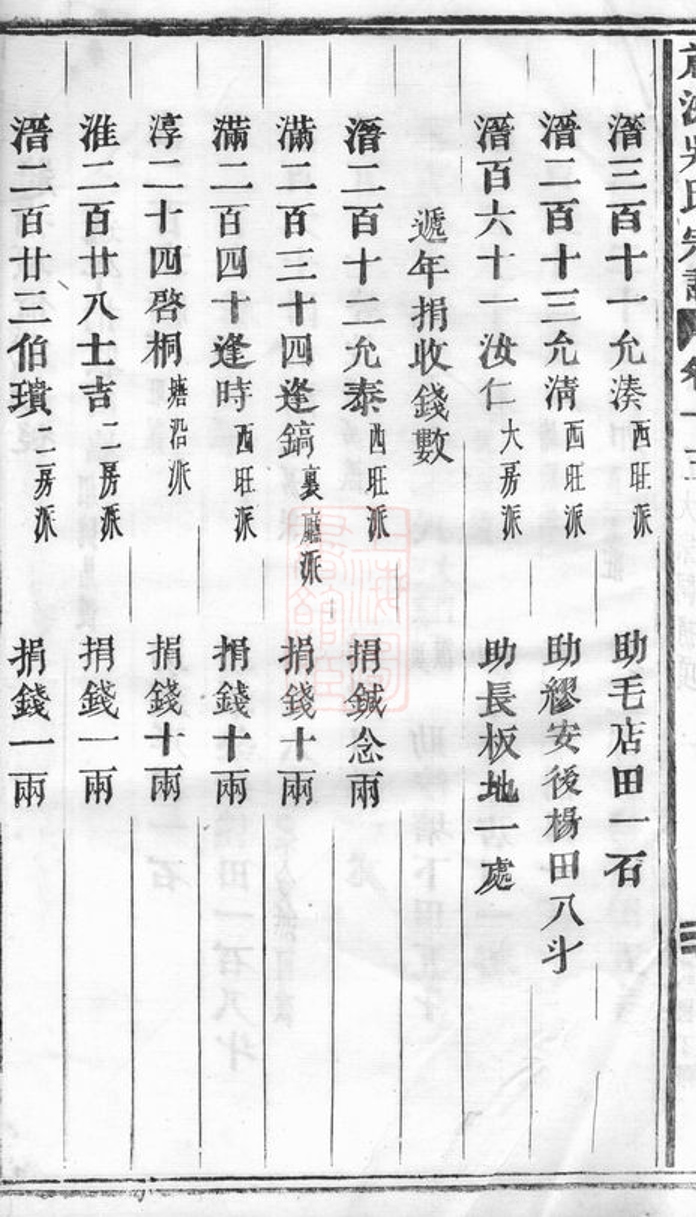 潛三百十一允湊西旺派 助毛店田一石
潛二百十三允淸西旺派 助繆安後楊田八斗
潛百六十一汝仁大房派 助長板地一處
遞年捐收錢數
潛二百十二允泰西旺派 捐鍼念兩
滿二百三十四逢鎬裏廳派 捐錢十兩
滿二百四十逢時西旺派 捐錢十兩
淳二十四啓桐塘沿派 捐錢十兩
淮二百廿八士吉二房派 捐錢一兩
潛二百廿三伯璝二房派 捐錢一兩